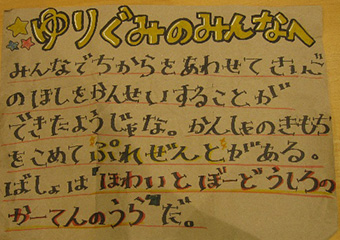 ゆりぐみのみんなへ
みんなでちからをあわせてさいご
のほしをかんせいすることが
できたようじゃな。かんしゃのきもち
をこめてぷれぜんとがある。
ばしょは「ほわいとぼーどうしろの
かーてんのうら」だ。